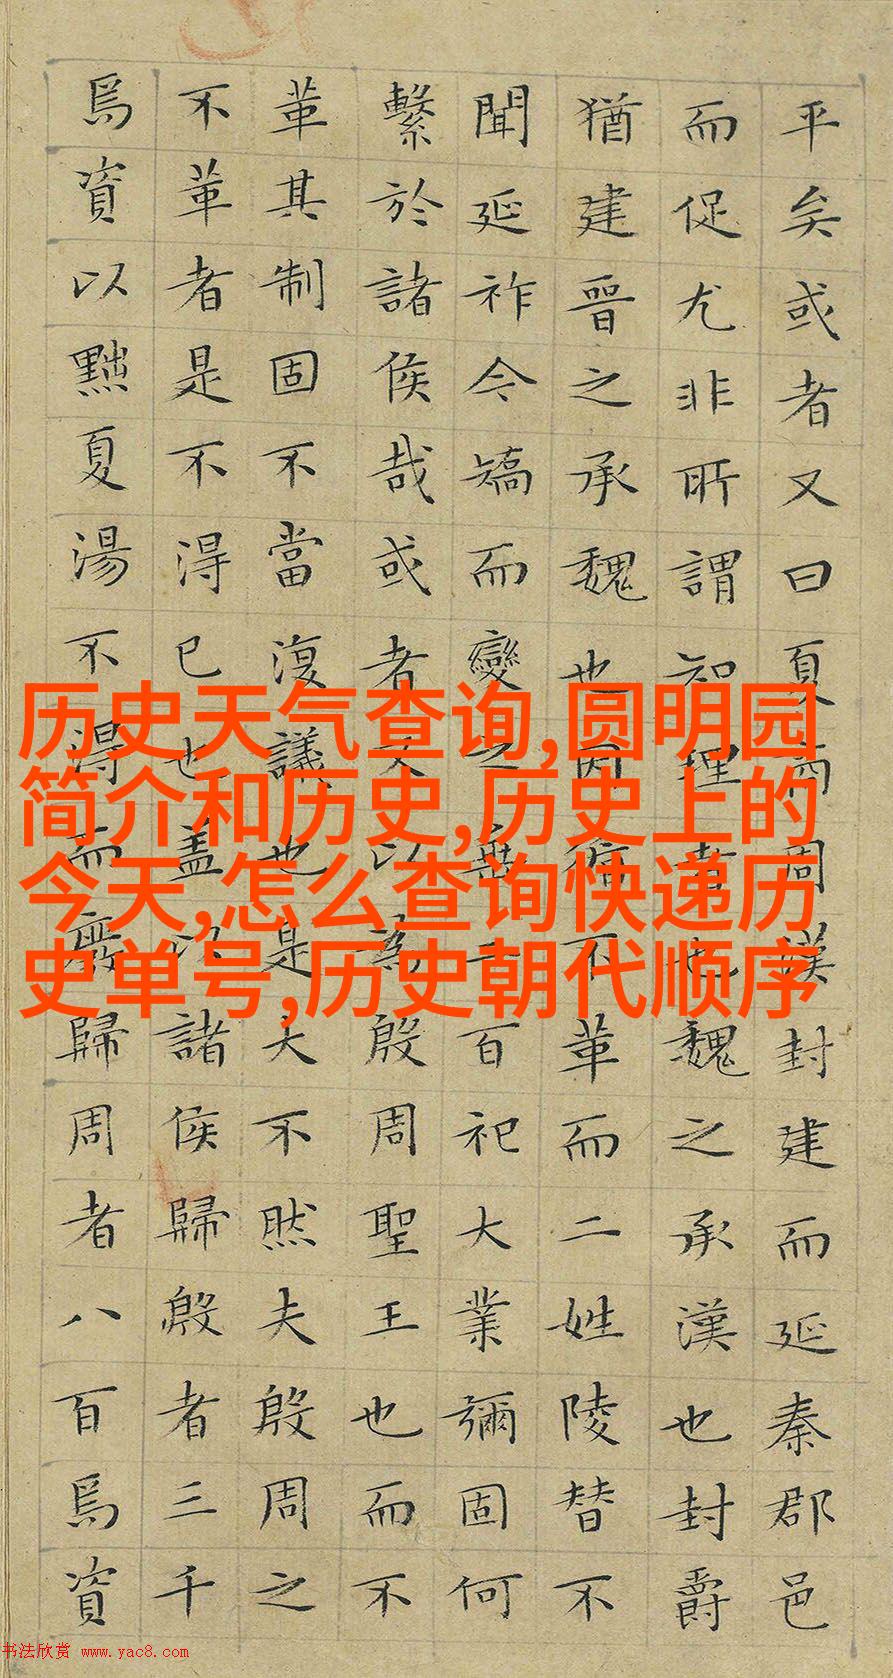 平矣或者又曰夏商周漢封建而延秦郡邑
而促尤非所謂知理者也魏之承漢也封爵
猶建晉之承魏也因循不革而二姓陵替不
聞延祚今矯而變之垂二百祀大業彌固何
繫於諸侯哉或者又以為殷周聖王也而不
革其制固不當復議也是大不然夫殷周之
不革者是不得已也盖以諸侯歸殷者三千
焉資以黜夏湯不得而廢歸周者八百焉資
历史天气查询,圆明园
简介和历史,历史上的
今天,怎么查询快递历
史单号,历史朝代顺序
书法欣赏 www.yac8.com